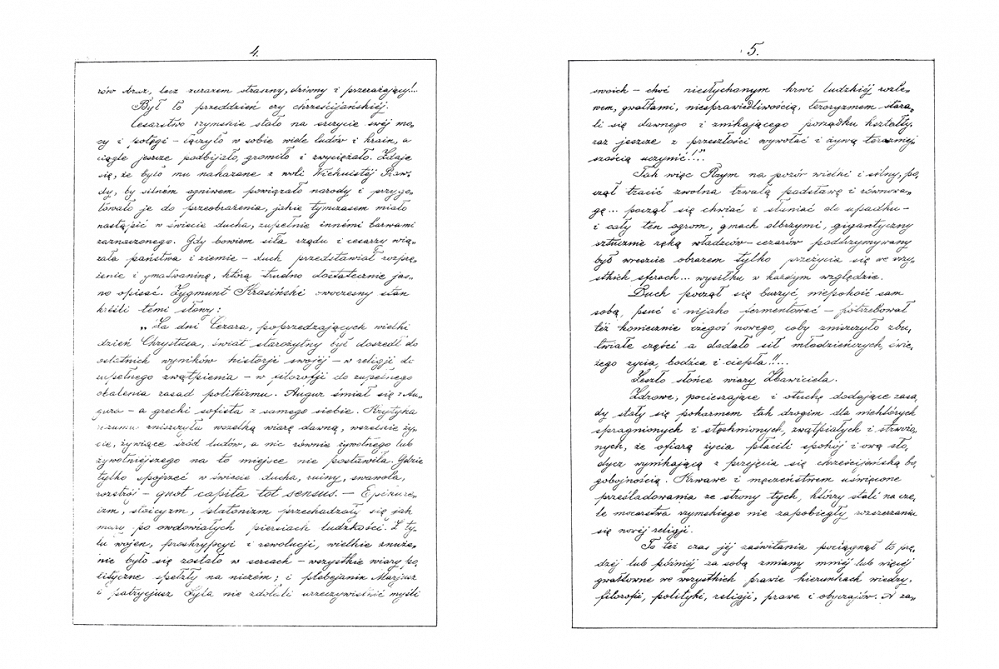 4.
rów obraz, lecz zarazem straszny, dziwny i przerażający!...
Był to przeddzień ery chrześcijańskiej.
Cesarstwo rzymskie stało na szczycie swéj mo-
cy i potęgi – łączyło w sobie wiele ludów i krain, a
ciągle jeszcze podbijało, gromiło i zwyciężało. Zdaje
się, że było mu nakazane z woli Wiekuistéj Praw-
dy, by silném ogniwem powiązało narody i przygo-
towało je do przeobrażenia, jakie tymczasem miało
nastąpić w świecie ducha, zupełnie innemi barwami
zaznaczonego. Gdy bowiem siła rządu i cesarzy wią-
zała państwa i ziemie – duch przedstawiał rozprę-
żenie i
którą trudno dostatecznie jas-
no opisać. Zygmunt Krasiński ówczesny stan
kréśli témi słowy:
„Za dni Cezara, poprzedzających wielki
dzień Chrystusa, świat starożytny był doszedł do
ostatnich wyników historji swojéj – w religji do
zupełnego zwątpienia – w filozofji do zupełnego
obalenia zasad politeizmu. Augur śmiał się z Au-
gura – a grecki sofista z samego siebie. Krytyka
rozumu zniszczyła wszelką wiarę dawną, wszelkie ży-
cie, żywiące śród ludów, a nic równie żywotnego lub
żywotniejszego na to miejsce nie postawiła. Gdzie
tylko spojrzéć w świecie ducha, ruiny, swawola,
rozstrój – quot capita tot sensus. – Epikure-
izm, stoicyzm, platonizm przechadzały się jak
mary po owdowiałych piersiach ludzkości. Z ty-
lu wojen, proskrypcyi i rewolucji, wielkie znuże-
nie było się zostało w sercach – wszystkie wiary po-
lityczne spełzły na niczém; i plebejanin Marjusz
i patrycjusz Sylla nie zdołali urzeczywistnić myśli
5.
swoich – choć niesłychanym krwi ludzkiéj rozle-
wem, gwałtami, niesprawiedliwością, teroryzmem stara-
li się dawnego i znikającego porządku kształty
raz jeszcze z przeszłości wywołać i żywą teraźniej-
szością uczynić!..."
Tak więc Rzym na pozór wielki i silny, po-
czął tracić zwolna trwałą podstawę i równowa-
gę... począł się chwiać i słaniać do upadku –
i cały ten ogrom, gmach olbrzymi, gigantyczny
sztucznie ręką władzców-cezarów podtrzymywany
był wreszcie obrazem tylko przeżycia się we wszy-
stkich sferach... wysiłku w każdym względzie.
Duch począł się burzyć, niepokoić sam
sobą, psuć i nijako fermentować – potrzebował
też koniecznie czegoś nowego, coby zniszczyło zbu-
twiałe części a dodało sił młodzieńczych, świe-
żego życia, bodźca i ciepła!!...
Zeszło słońce wiary Zbawiciela.
Zdrowe, pocieszające i otuchę dodające zasa-
dy stały się pokarmem tak drogim dla niektórych
spragnionych i stęchmionych, zwątpiałych i strwożo-
nych, że ofiarą życia płacili spokój i ową sło-
dycz wynikającą z przejęcia się chrześcijańską bo-
gobojnością. Krwawe i męczeństwem uświęcone
prześladowania ze strony tych, którzy stali na cze-
le mocarstwa rzymskiego nie zapobiegły wzszerzaniu
się nowéj religji.
To też czas jéj zaświtania pociągnął to prę-
dzéj lub późniéj za sobą zmiany mniéj lub więcéj
gwałtowne we wszystkich prawie kierunkach wiedzy,
filozofji, polityki, religji, prawa i obyczajów. A za-